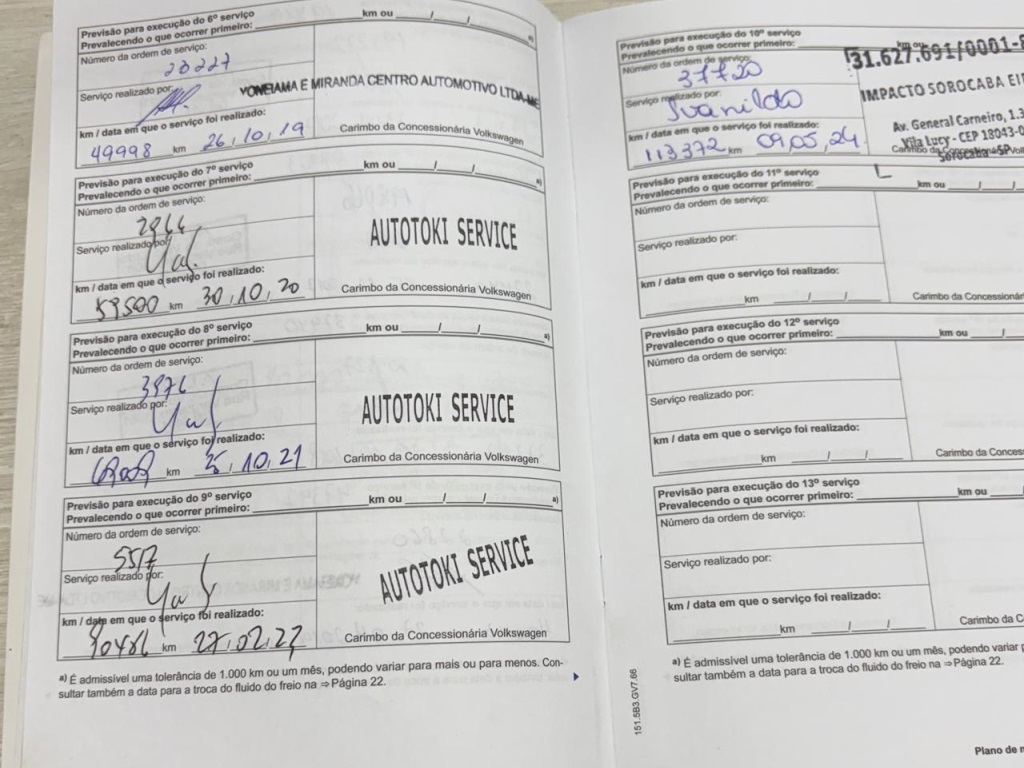 Previsão para execução do 6º serviço
Prevalecendo o que ocorrer primeiro: km ou / / a)
Número da ordem de serviço:
20227
Serviço realizado por:
YONEIAMA E MIRANDA CENTRO AUTOMOTIVO LTDA-ME
km / data em que o serviço foi realizado:
49998 km 26, 10, 19
Carimbo da Concessionária Volkswagen
Previsão para execução do 7º serviço
Prevalecendo o que ocorrer primeiro: km ou / / a)
Número da ordem de serviço:
Serviço realizado por:
AUTOTOKI SERVICE
km / data em que o serviço foi realizado:
59500 km 30, 10, 20
Carimbo da Concessionária Volkswagen
Previsão para execução do 8º serviço
Prevalecendo o que ocorrer primeiro: km ou / / a)
Número da ordem de serviço:
3976
Serviço realizado por:
AUTOTOKI SERVICE
km / data em que o serviço foi realizado:
km 25, 10, 21
Carimbo da Concessionária Volkswagen
Previsão para execução do 9º serviço
Prevalecendo o que ocorrer primeiro: km ou / / a)
Número da ordem de serviço:
5517
Serviço realizado por:
AUTOTOKI SERVICE
km / data em que o serviço foi realizado:
90486 km 27, 02, 23
Carimbo da Concessionária Volkswagen
a) É admissível uma tolerância de 1.000 km ou um mês, podendo variar para mais ou para menos. Con-
sultar também a data para a troca do fluido do freio na ⇒Página 22.
Previsão para execução do 10º serviço
Prevalecendo o que ocorrer primeiro: km ou
31.627.691/0001-
Número da ordem de serviço:
37720
IMPACTO SOROCABA EI
Serviço realizado por:
Ivanildo
Av. General Carneiro, 1.3
Vila Lucy - CEP 18043-0
Sorocaba - SP
km / data em que o serviço foi realizado:
113372 km 09, 05, 24
Previsão para execução do 11º serviço
Prevalecendo o que ocorrer primeiro: km ou / /
Número da ordem de serviço:
Serviço realizado por:
km / data em que o serviço foi realizado:
km / /
Carimbo da Concessionár
Previsão para execução do 12º serviço
Prevalecendo o que ocorrer primeiro: km ou /
Número da ordem de serviço:
Serviço realizado por:
km / data em que o serviço foi realizado:
km / /
Carimbo da Concess
Previsão para execução do 13º serviço
Prevalecendo o que ocorrer primeiro: km ou /
Número da ordem de serviço:
Serviço realizado por:
km / data em que o serviço foi realizado:
km / /
Carimbo da C
a) É admissível uma tolerância de 1.000 km ou um mês, podendo variar p
sultar também a data para a troca do fluido do freio na ⇒Página 22.
151.5B3.GV7.66
Plano de m